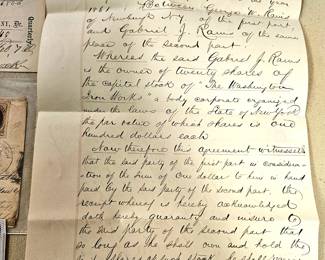 ST, Dr.
Quarterly
1851, Between George W. Rains
of Newburgh N.Y. of the first part,
and Gabriel J. Rains of the same
place of the second part.
Whereas the said Gabriel J. Rains
is the owner of twenty shares of
the capital stock of "The Washington
Iron Works" a body corporate organized
under the laws of the State of New York
the par value of which shares is one
hundred dollars each
Now therefore this agreement witnesseth
that the said party of the first part in consider-
ation of the sum of one dollar to him in hand
paid by the said party of the second part, the
receipt whereof is hereby acknowledged
doth hereby guaranty and insure to
the said party of the second part that
so long as he shall own and hold the
said shares of such stock, he shall